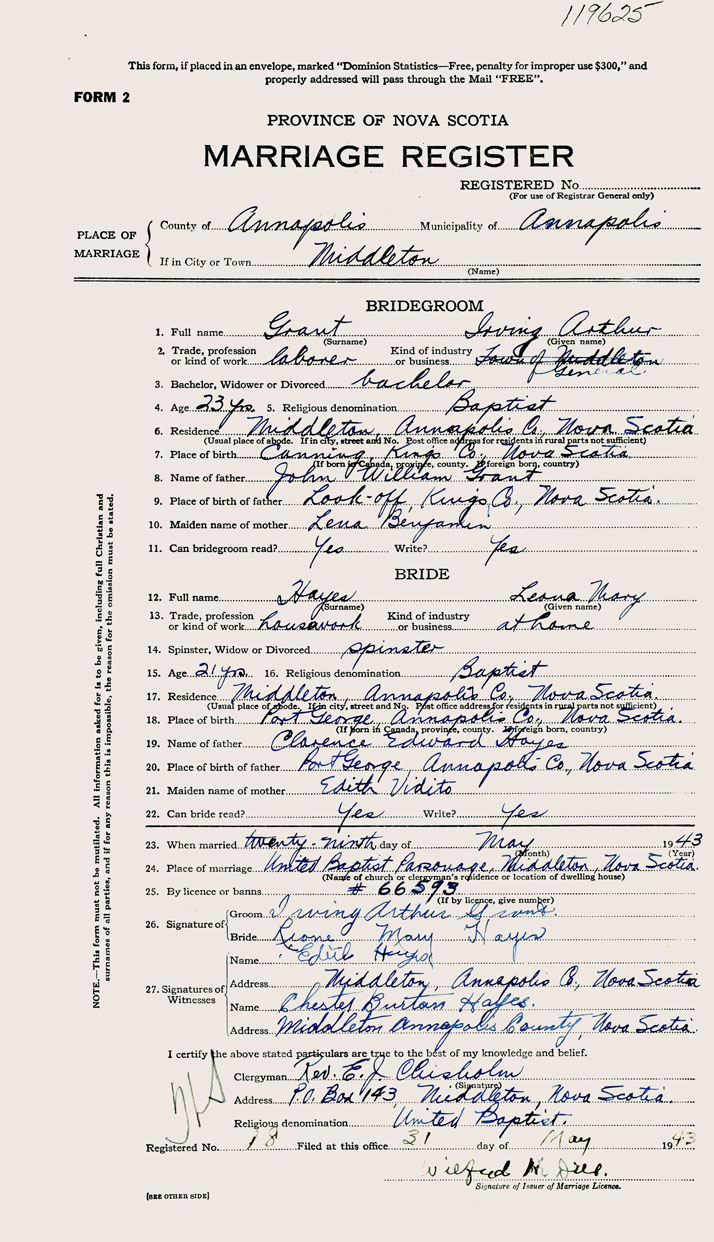 119625
This form, if placed in an envelope, marked "Dominion Statistics—Free, penalty for improper use $300," and
properly addressed will pass through the Mail "FREE".
FORM 2
PROVINCE OF NOVA SCOTIA
MARRIAGE REGISTER
REGISTERED No.
(For use of Registrar General only)
PLACE OF MARRIAGE
County of Annapolis Municipality of Annapolis
If in City or Town Middleton
(Name)
BRIDEGROOM
1. Full name Grant Irving Arthur
(Surname) (Given name)
2. Trade, profession or kind of work laborer Kind of industry or business Town of Middleton
General
3. Bachelor, Widower or Divorced bachelor
4. Age 23 yrs. 5. Religious denomination Baptist
6. Residence Middleton, Annapolis Co., Nova Scotia
(Usual place of abode. If in city, street and No. Post office address for residents in rural parts not sufficient)
7. Place of birth Canning, Kings Co., Nova Scotia
(If born in Canada, province, county. If foreign born, country)
8. Name of father John William Grant
9. Place of birth of father Look-off, Kings Co., Nova Scotia.
10. Maiden name of mother Lena Benjamin
11. Can bridegroom read? Yes Write? Yes
BRIDE
12. Full name Hayes Leona Mary
(Surname) (Given name)
13. Trade, profession or kind of work housework Kind of industry or business at home
14. Spinster, Widow or Divorced spinster
15. Age 21 yrs. 16. Religious denomination Baptist
17. Residence Middleton, Annapolis Co., Nova Scotia.
(Usual place of abode. If in city, street and No. Post office address for residents in rural parts not sufficient)
18. Place of birth Port George, Annapolis Co., Nova Scotia.
(If born in Canada, province, county. If foreign born, country)
19. Name of father Clarence Edward Hayes
20. Place of birth of father Port George, Annapolis Co., Nova Scotia
21. Maiden name of mother Edith Vidito
22. Can bride read? Yes Write? Yes
23. When married twenty-ninth day of May 1943
(Month) (Year)
24. Place of marriage United Baptist Parsonage, Middleton, Nova Scotia.
(Name of church or clergyman's residence or location of dwelling house)
25. By licence or banns # 66593
(If by licence, give number)
26. Signature of
Groom Irving Arthur Grant.
Bride Leone Mary Hayes
27. Signatures of Witnesses
Name Edith Hayes
Address Middleton, Annapolis Co., Nova Scotia
Name Chester Burton Hayes.
Address Middleton Annapolis County, Nova Scotia.
I certify the above stated particulars are true to the best of my knowledge and belief.
Clergyman Rev. E. J. Chisholm
(Signature)
Address P.O. Box 143, Middleton, Nova Scotia.
Religious denomination United Baptist.
Registered No. 18 Filed at this office 31 day of May 1943
Wilfred H. Dill.
Signature of Issuer of Marriage Licence.
[SEE OTHER SIDE]
NOTE.—This form must not be mutilated. All information asked for is to be given, including full Christian and
surnames of all parties, and if for any reason this is impossible, the reason for the omission must be stated.